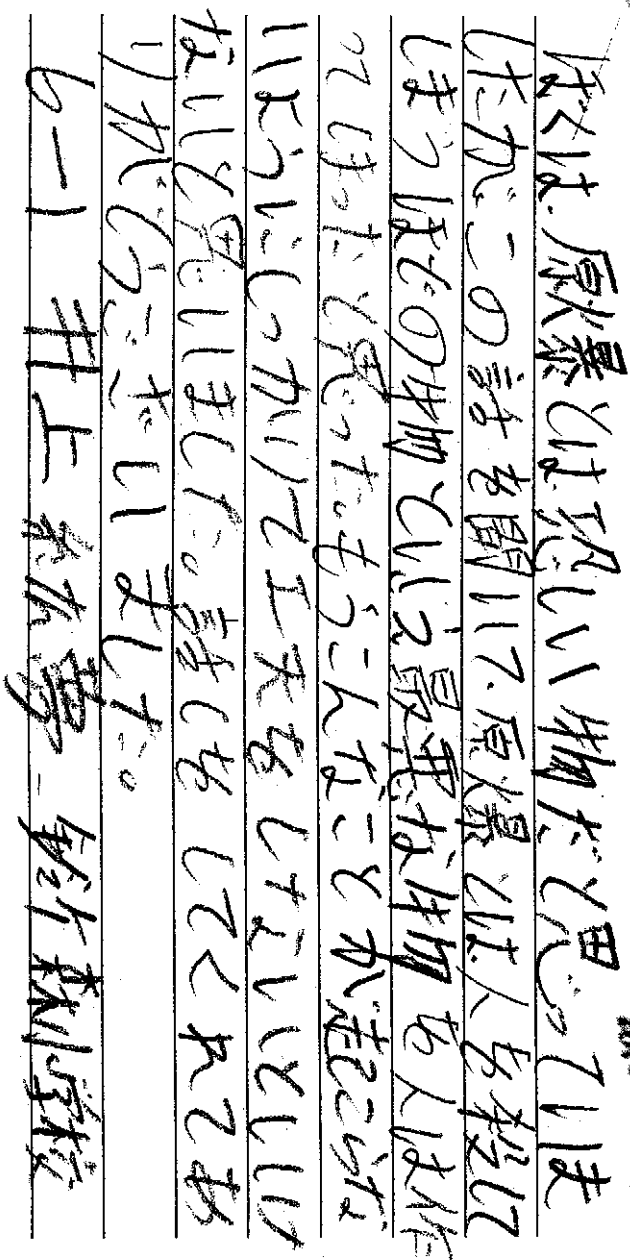 ぼくは、原爆とは恐しい物だと思っていま
したが、この話を聞いて、原爆とは人を殺して
しまうほどの物という最悪な物を人は作
ってしまったと思った。もうこんなことが起こらな
いようにしっかりて工夫をしたいといけ
ないと思いました。話しをしてくれてあ
りがとうございました。
6-1 井上